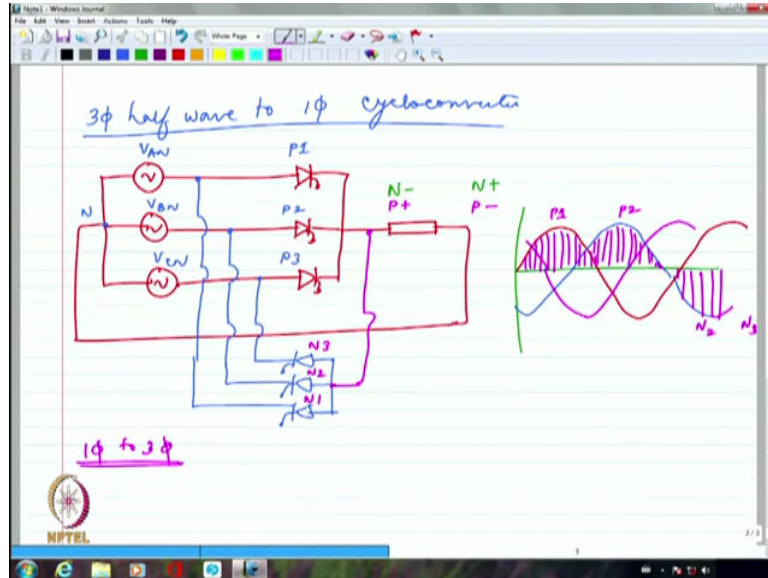 Note1 - Windows Journal
File Edit View Insert Actions Tools Help
Whole Page
B I
3ϕ half wave to 1ϕ cycloconverter
V_AN P1
N V_BN P2
V_CN P3
N- N+
P+ P-
P1 P2
N2 N3
N3
N2
N1
1ϕ to 3ϕ
NPTEL
3/3
3